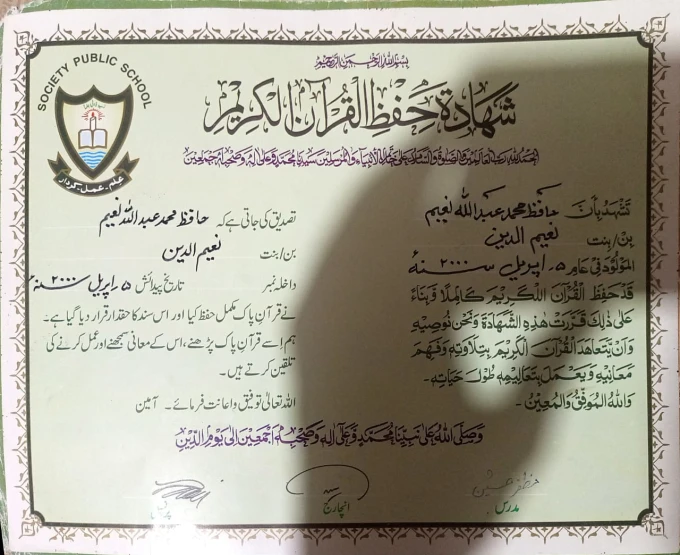 SOCIETY PUBLIC SCHOOL
علم۔عمل۔کردار
بسم الله الرحمن الرحيم
شَهَادَة حِفْظِ القُرآنِ الكَرِيْمِ
الحمد لله رب العالمين والصلوة والسلام على خاتم الأنبياء والمرسلين سيدنا محمد وعلى اله وصحبه اجمعين
تَشْهَدُ بِأنَّ حافظ محمد عبدالله نعیم
بن/بنت نعیم الدین
المولود في عام ۵۔اپریل سنہ ۲۰۰۰ء
قَدْ حَفِظَ القُرْآنَ الكَرِيْمَ كَامِلًا وَبِنَاءً
عَلى ذٰلِكَ قَرَّرَتْ هٰذِهِ الشَّهَادَةَ وَنَحْنُ نُوصِيْهِ
وَأنْ يَتَعَاهَدَ القُرْآنَ الكَرِيْمَ بِتِلَاوَتِهٖ وَفَهْمِ
مَعَانِيْهِ وَيَعْمَلَ بِتَعَالِيْمِهٖ طُوْلَ حَيَاتِهٖ۔
وَاللهُ المُوَفِّقُ وَالمُعِيْنُ۔
تصدیق کی جاتی ہے کہ حافظ محمد عبداللہ نعیم
بن/بنت نعیم الدین
داخلہ نمبر تاریخ پیدائش ۵۔اپریل سنہ ۲۰۰۰ء
نے قرآن پاک مکمل حفظ کیا اور اس سند کا حقدار قرار دیا گیا ہے۔
ہم اسے قرآن پاک پڑھنے،اس کے معانی سمجھنے اور عمل کرنے کی
تلقین کرتے ہیں۔
اللہ تعالیٰ توفیق واعانت فرمائے۔ آمین
وَصَلَّى اللهُ عَلى نَبِيِّنَا مُحَمَّدٍ وَّعَلٰى اٰلِهٖ وَصَحْبِهٖ اَجْمَعِيْنَ اِلٰى يَوْمِ الدِّيْنِ
مدرس
انچارج